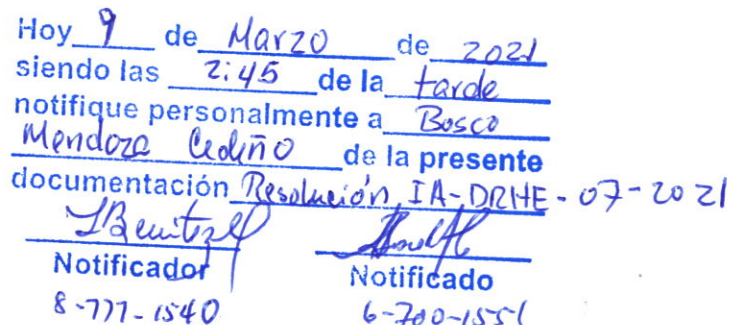 Hoy 9 de Marzo de 2021
siendo las 2:45 de la tarde
notifique personalmente a Bosco
Mendoza Cedeño de la presente
documentación Resolución IA-DRHE-07-2021
Notificador Notificado
8-777-1540 6-700-1551